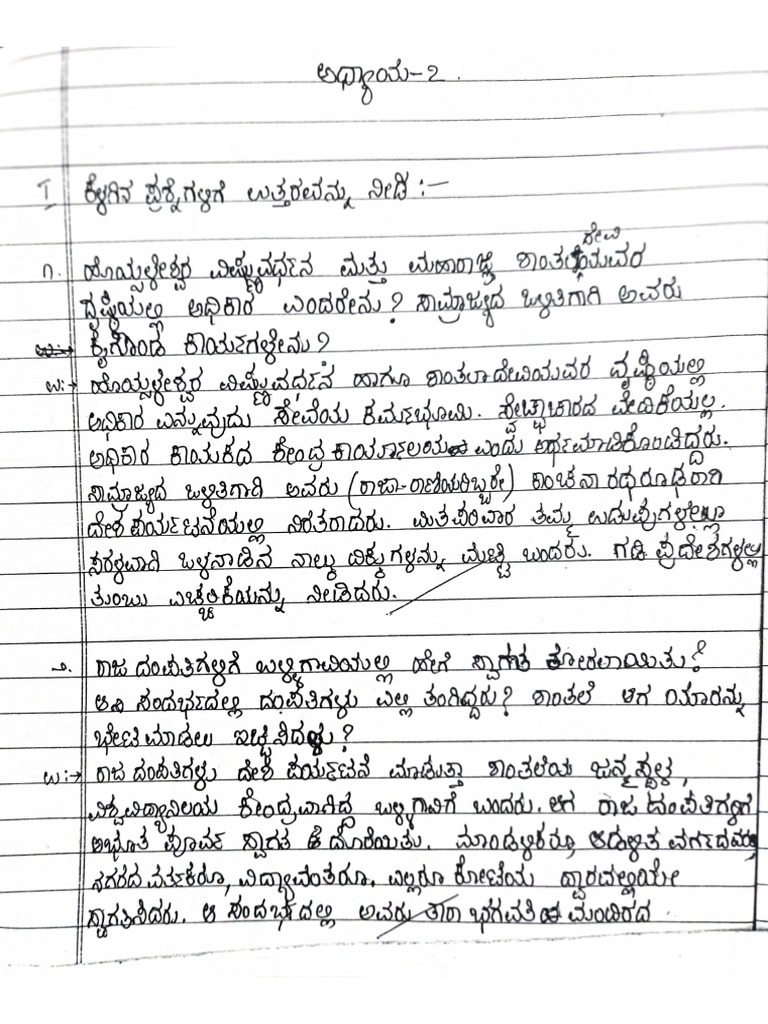 ಅಧ್ಯಾಯ-೨.
I ಕೆಳಗಿನ ಪ್ರಶ್ನೆಗಳಿಗೆ ಉತ್ತರವನ್ನು ನೀಡಿ :-
೧. ಹೊಯ್ಸಳೇಶ್ವರ ವಿಷ್ಣುವರ್ಧನ ಮತ್ತು ಮಹಾರಾಜ್ಞಿ ಶಾಂತಲದೇವಿಯವರ
ದೃಷ್ಟಿಯಲ್ಲಿ ಅಧಿಕಾರ ಎಂದರೇನು? ಸಾಮ್ರಾಜ್ಯದ ಒಳಿತಿಗಾಗಿ ಅವರು
ಕೈಗೊಂಡ ಕಾರ್ಯಗಳೇನು?
ಉ:→ ಹೊಯ್ಸಳೇಶ್ವರ ವಿಷ್ಣುವರ್ಧನ ಹಾಗೂ ಶಾಂತಲಾದೇವಿಯವರ ದೃಷ್ಠಿಯಲ್ಲಿ
ಅಧಿಕಾರ ಎನ್ನುವುದು ಸೇವೆಯ ಕರ್ಮಭೂಮಿ. ಸ್ವೇಚ್ಛಾಚಾರದ ವೇದಿಕೆಯಲ್ಲ.
ಅಧಿಕಾರ ಕಾಯಕದ ಕೇಂದ್ರ ಕಾರ್ಯಾಲಯ ಎಂದು ಅರ್ಥಮಾಡಿಕೊಂಡಿದ್ದರು.
ಸಾಮ್ರಾಜ್ಯದ ಒಳಿತಿಗಾಗಿ ಅವರು (ರಾಜಾ-ರಾಣಿಯರಿಬ್ಬರೇ) ಕಾಂಚನಾರಥರೂಢರಾಗಿ
ದೇಶಪರ್ಯಟನೆಯಲ್ಲಿ ನಿರತರಾದರು. ಮಿತಪರಿವಾರ ತಮ್ಮ ಉಡುಪುಗಳೆಲ್ಲಾ
ಸರಳವಾಗಿ ಒಳನಾಡಿನ ನಾಲ್ಕು ದಿಕ್ಕುಗಳನ್ನು ಮೆಟ್ಟಿ ಬಂದರು. ಗಡಿ ಪ್ರದೇಶಗಳಲ್ಲಿ
ತುಂಬು ಎಚ್ಚರಿಕೆಯನ್ನು ನೀಡಿದರು.
೨. ರಾಜ ದಂಪತಿಗಳಿಗೆ ಬಳ್ಳಿಗಾವಿಯಲ್ಲಿ ಹೇಗೆ ಸ್ವಾಗತ ಕೋರಲಾಯಿತು?
ಆ ಸಂದರ್ಭದಲ್ಲಿ ದಂಪತಿಗಳು ಎಲ್ಲಿ ತಂಗಿದ್ದರು? ಶಾಂತಲೆ ಆಗ ಯಾರನ್ನು
ಭೇಟಿಮಾಡಲು ಇಚ್ಛಿಸಿದಳು?
ಉ:→ ರಾಜ ದಂಪತಿಗಳು ದೇಶ ಪರ್ಯಟನೆ ಮಾಡುತ್ತಾ ಶಾಂತಲೆಯ ಜನ್ಮಸ್ಥಳ,
ವಿಶ್ವವಿದ್ಯಾನಿಲಯ ಕೇಂದ್ರವಾಗಿದ್ದ ಬಳ್ಳಿಗಾವಿಗೆ ಬಂದರು. ಆಗ ರಾಜ ದಂಪತಿಗಳಿಗೆ
ಅಭೂತ ಪೂರ್ವ ಸ್ವಾಗತ ದೊರೆಯಿತು. ಮಾಂಡಳಿಕರೂ, ಆಡಳಿತ ವರ್ಗದವರೂ
ನಗರದ ವರ್ತಕರೂ, ವಿದ್ಯಾವಂತರೂ. ಎಲ್ಲರೂ ಕೋಟೆಯ ದ್ವಾರವಲ್ಲಿಯೇ
ಸ್ವಾಗತಿಸಿದರು. ಆ ಸಂದರ್ಭದಲ್ಲಿ ಅವರು ತಾರಾ ಭಗವತಿ ಮಂದಿರದ